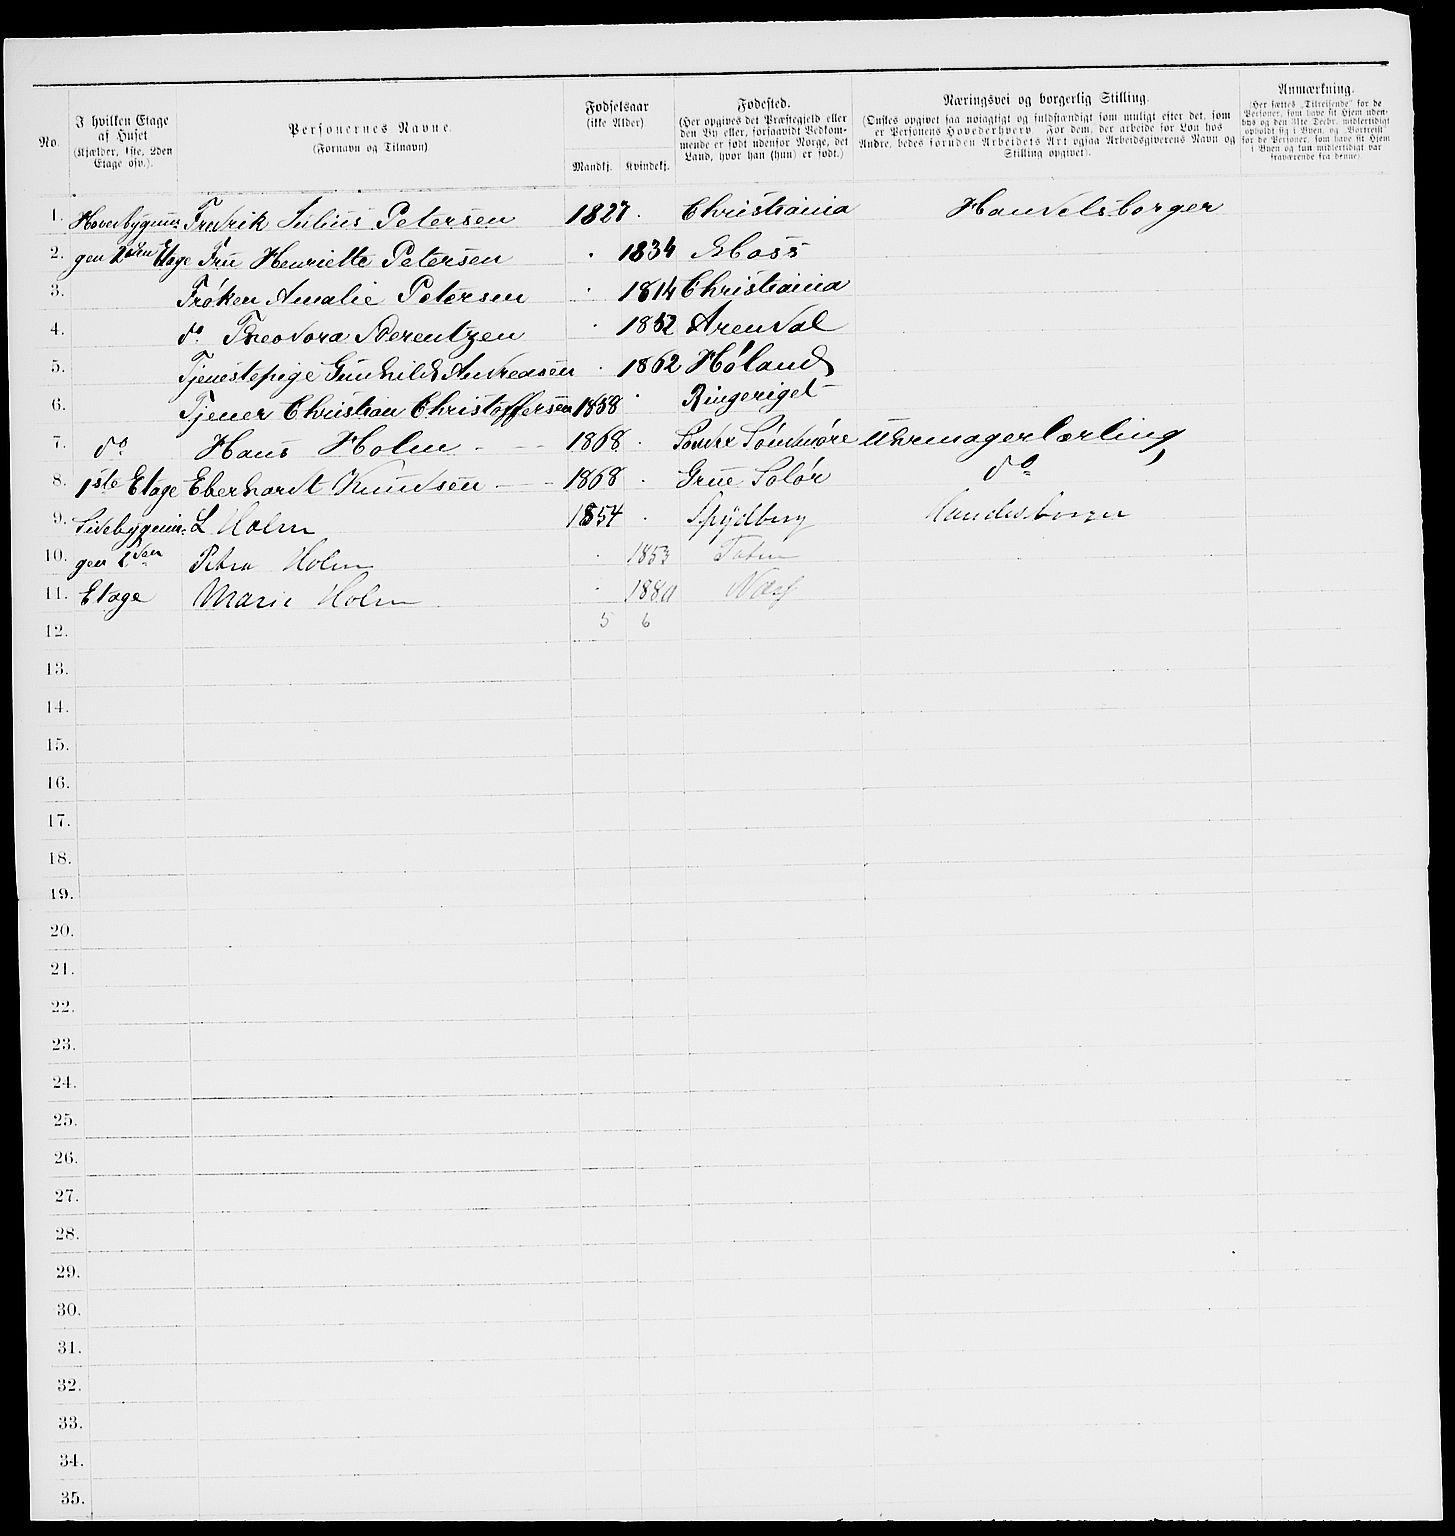 No.
I hvilken Etage
af Huset
(Kjælder, 1ste, 2den
Etage osv.).
Personernes Navne.
(Fornavn og Tilnavn)
Fødselsaar
(ikke Alder)
Mandkj. Kvindekj.
Fødested.
(Her opgives det Præstegjeld eller
den By eller, forsaavidt Vedkom-
mende er født udenfor Norge, det
Land, hvor han (hun) er født.)
Næringsvei og borgerlig Stilling.
(Ønskes opgivet saa nøiagtigt og fuldstændigt som muligt efter det, som
er Personens Hovederhverv. For dem, der arbeide for Løn hos
Andre, bedes foruden Arbeidets Art ogsaa Arbeidsgiverens Navn og
Stilling opgivet).
Anmærkning.
(Her sættes „Tilreisende“ for de
Personer, som have sit Hjem uden-
bys og den 31te Decbr. midlertidigt
opholdt sig i Byen, og „Bortreist“
for de Personer, som have sit Hjem
i Byen og kun midlertidigt var
fraværende fra denne)
1. Hovedbygnin- Fredrik Julius Petersen 1827 · Christiania Handelsborger
2. gen 2den Etage Fru Henriette Petersen · 1834 Moss
3. Frøken Amalie Petersen · 1814 Christiania
4. do Theodora Berentzen · 1852 Arendal
5. Tjenestepige Gunhild Andreasen · 1862 Høland
6. Tjener Christian Christoffersen 1838 · Ringeriget
7. do Hans Holm 1868 · Søndre Søndmøre Uhrmagerlærling
8. 1ste Etage Eberhardt Knudsen 1868 · Grue Solør do
9. Sidebygnin- L Holm 1854 · Spydberg Handelsborger
10. gen 2den Petra Holm · 1853
11. Etage Marie Holm · 1880
12. 5 6
13.
14.
15.
16.
17.
18.
19.
20.
21.
22.
23.
24.
25.
26.
27.
28.
29.
30.
31.
32.
33.
34.
35.